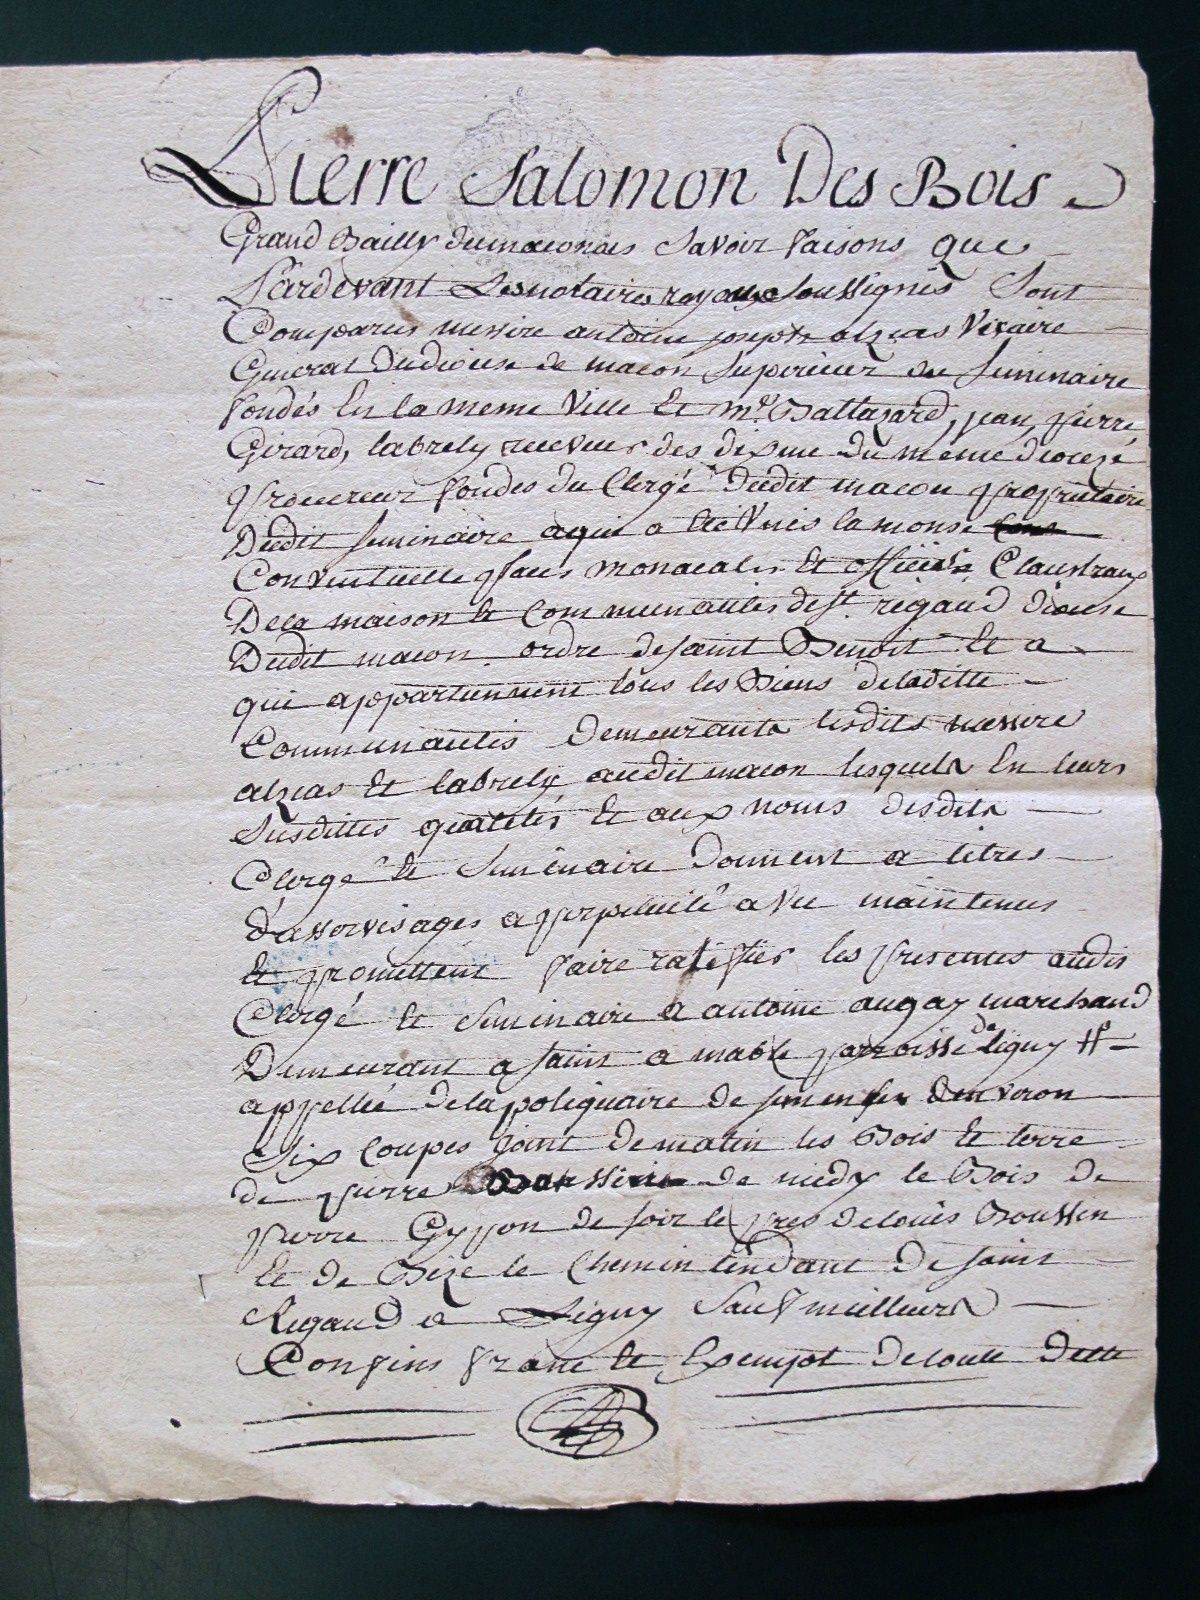 Pierre Salomon Des Bois
Grand Bailly dumaconais Savoir faisons que
Pardevant Lesnotaires royaux soussignés Sont
Comparus messire antoine joseph alzias Vicaire
General dudiocese de macon Superieur du Seminaire
fondés En la meme Ville Et mre Baltazard, jean, pierre
Girard, labrely receveur des dixme du meme dioceze
procureur fondés du Clergé dudit macon proprietaire
Dudit seminaire aqui a été Unis la monse
Conventuelle places monacales Et offices Claustraux
Dela maison Et Communautés de st. rigaud diocese
Dudit macon ordre desaint Benoit Et a
qui appartiennent tous les Biens deladitte
Communautés demeurants lesdits messire
alzias Et labrely audit macon lesquels En leurs
Susdittes qualités Et aux noms desdits
Clergé Et Seminaire donnent a titres
d'asservisages a perpetuité avec maintenus
Et promettent faire ratiffier les presentes audit
Clergé Et Seminaire a antoine augay marchand
Demeurant a saint amable parroisse de ligny
appellée dela de d'environ
Six Coupes joint de matin les Bois Et terre
de pierre de midy le Bois de
pierre de soir le pres delouis Boussin
Et de Bize le Chemin tendant de saint
Rigaud a Ligny Sauf meilleurs
Confins franc Et Exempt detoute dette